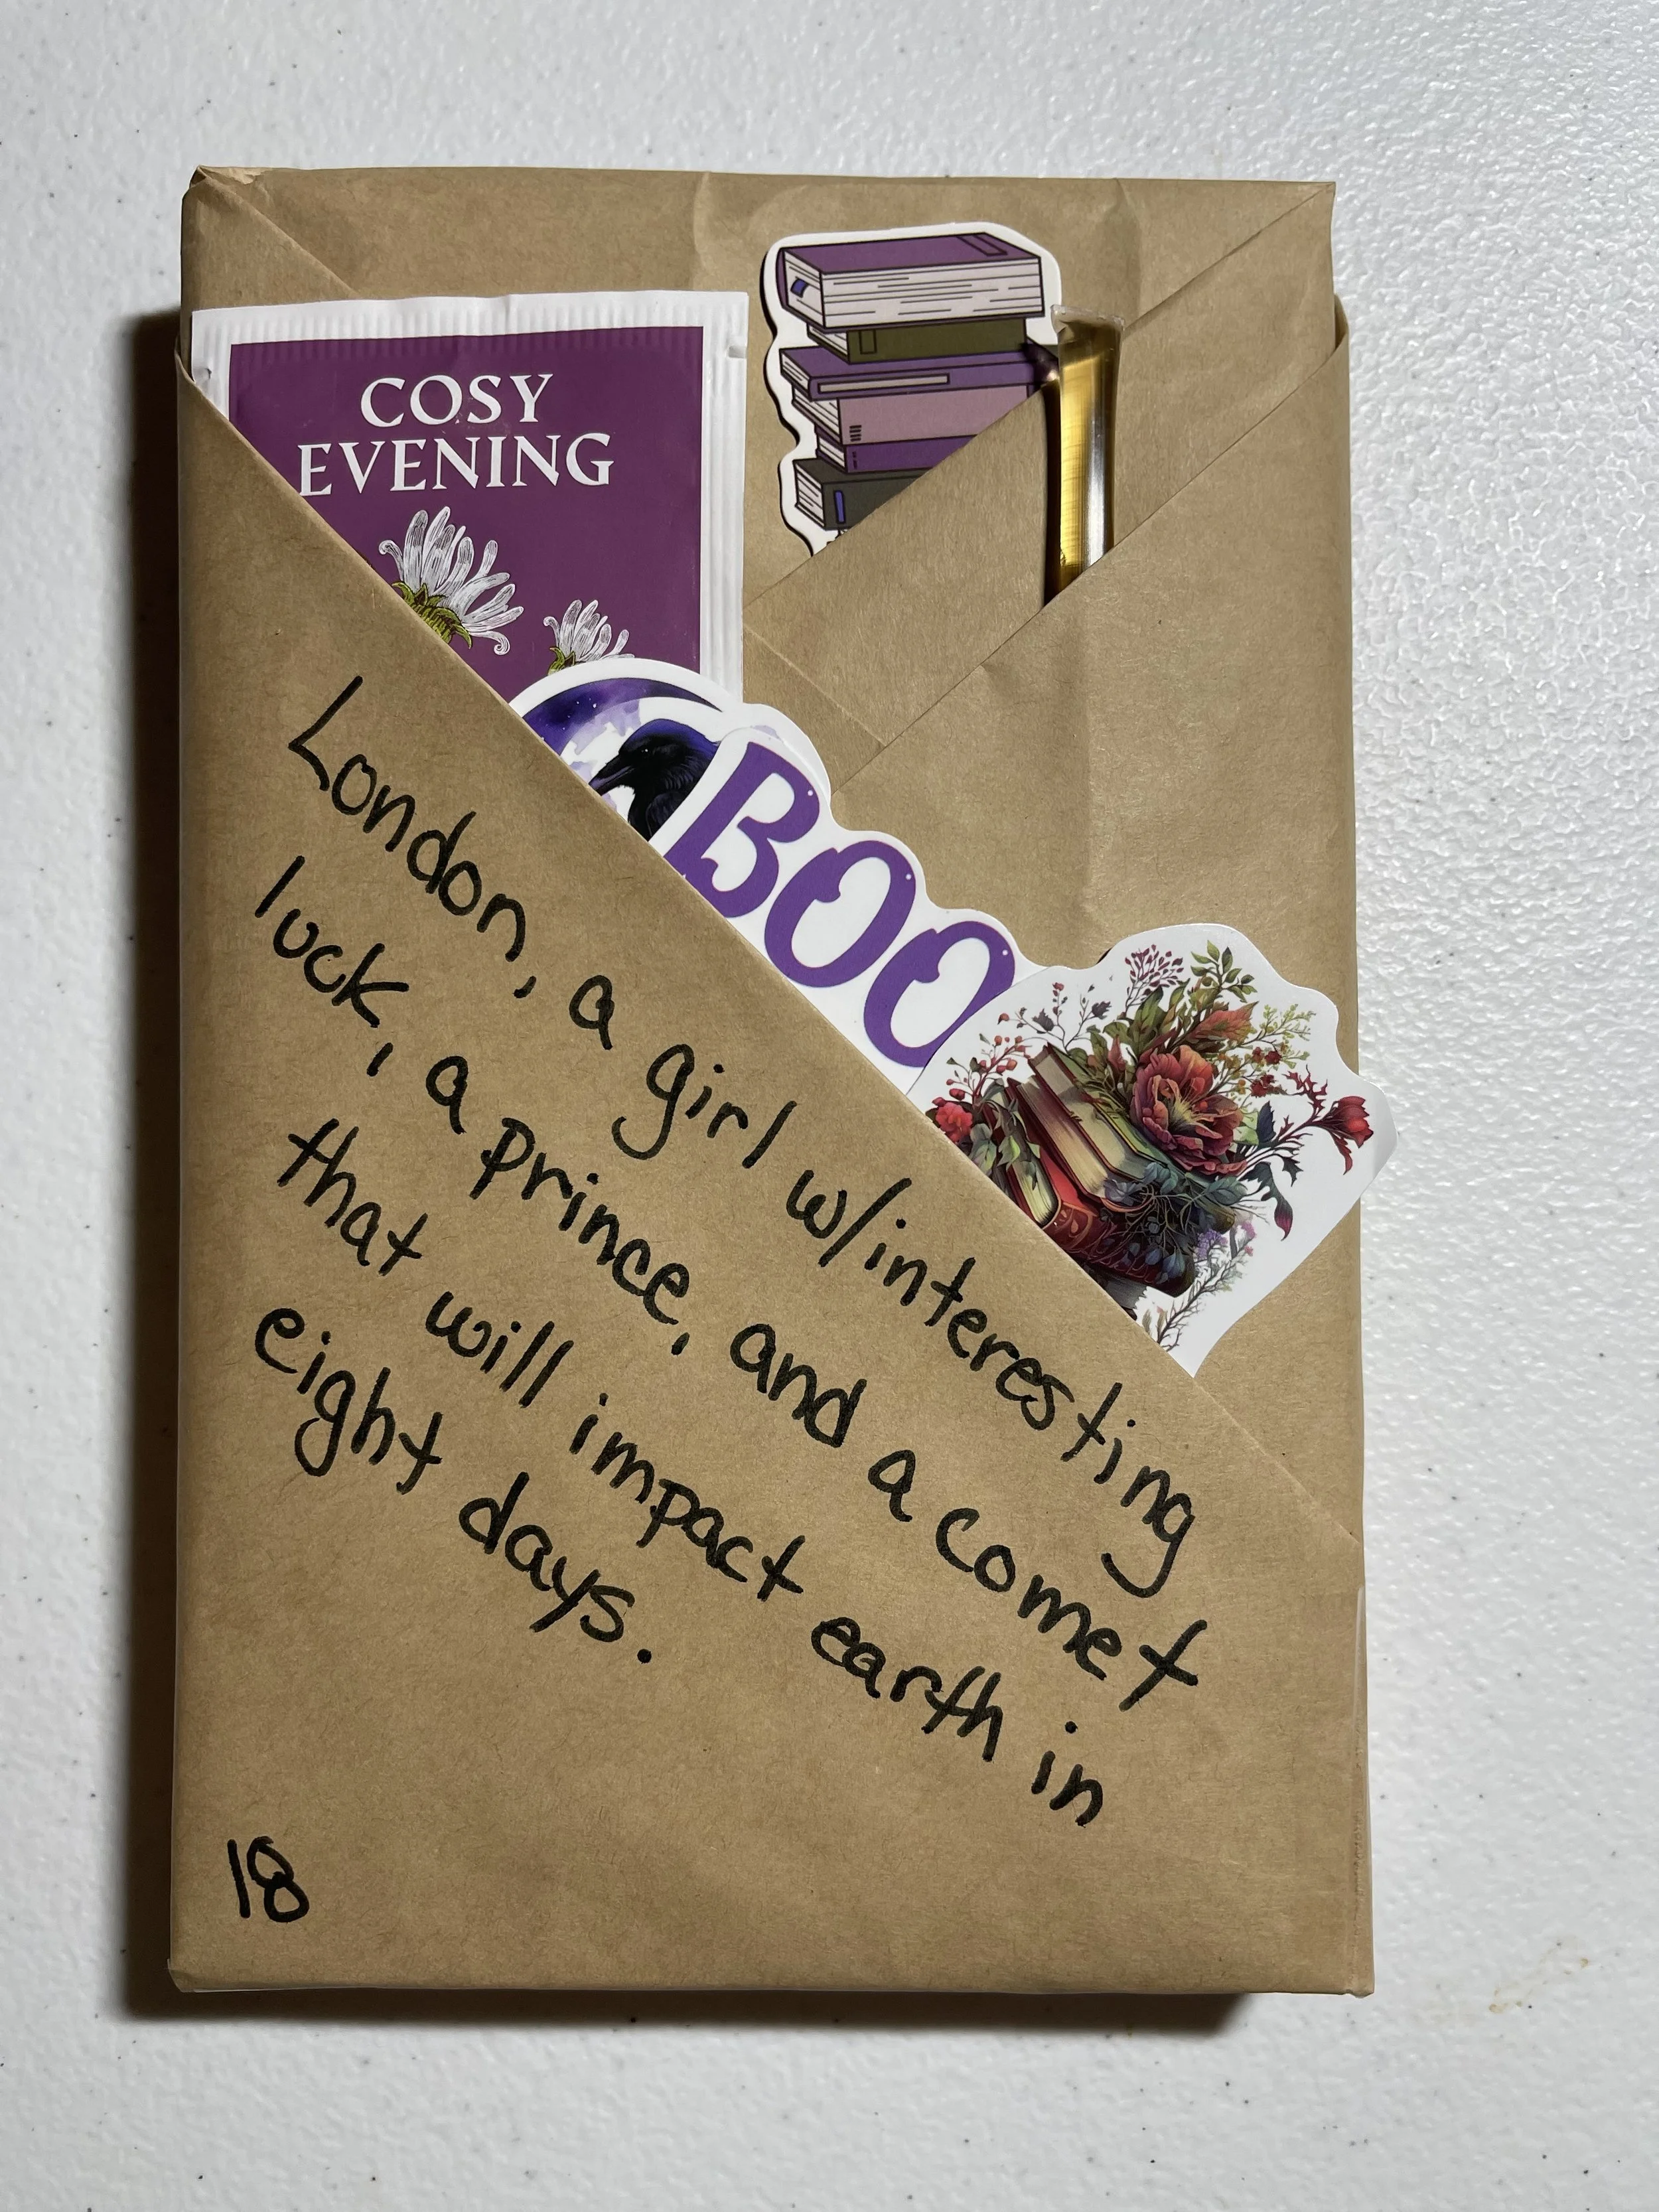 COSY
EVENING
BOO
London, a girl w/interesting
luck, a prince, and a comet
that will impact earth in
eight days.
18